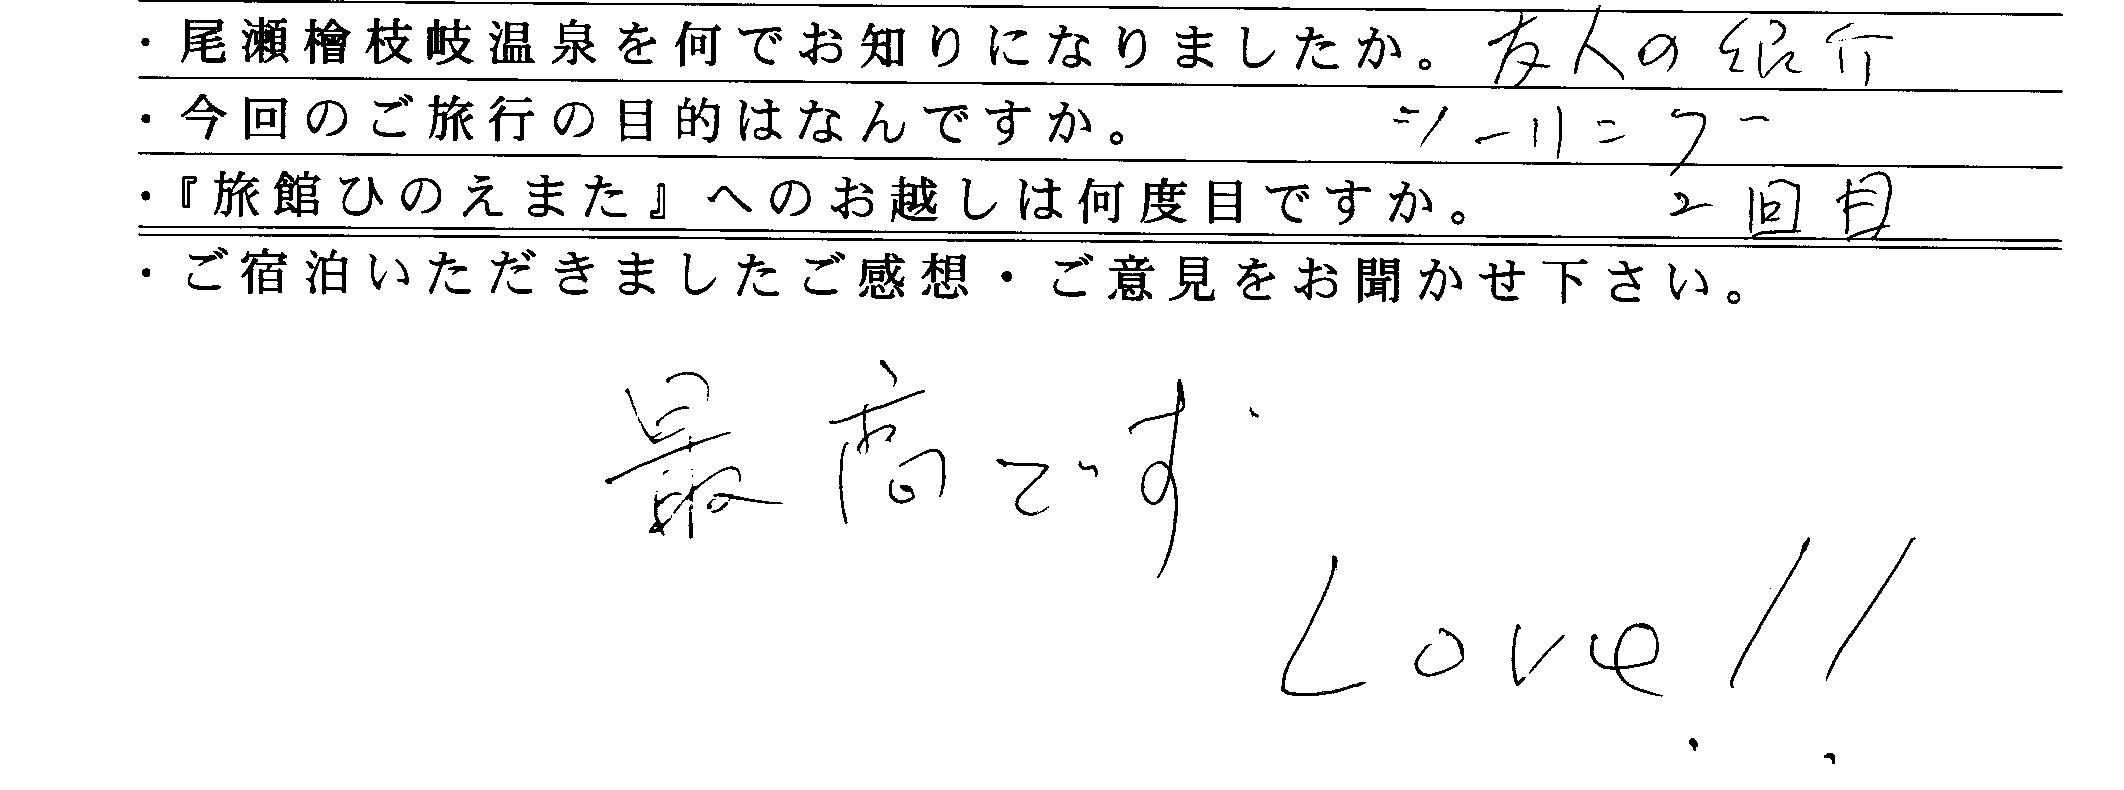 ・尾瀬檜枝岐温泉を何でお知りになりましたか。友人の紹介
・今回のご旅行の目的はなんですか。
・『旅館ひのえまた』へのお越しは何度目ですか。 2回目
・ご宿泊いただきましたご感想・ご意見をお聞かせ下さい。
最高です
Love!!